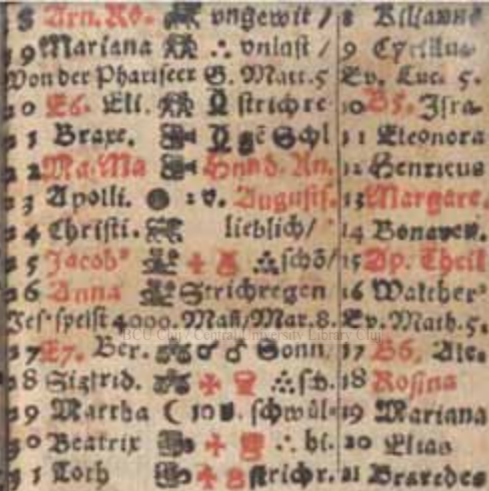 8 Arn. Kö. ungewit / 8 Kilianus
19 Mariana ∴ unlust / 9 Cyrillus
Von der Phariseer G. Matt. 5 Ev. Luc. 5.
20 E6. Eli. strichre 10 B5. Isra-
21 Braxe. Schl 11 Eleonora
22 Ma. Ma Hund. An. 12 Henricus
23 Apolli. Augusts. 13 Margare.
24 Christi. lieblich / 14 Bonaven.
25 Jacob ∴ schö / 15 Ap. Theil
26 Anna Strichregen 16 Walther
Jes' speist 4000. Mañ / Mar. 8. Ev. Math. 5.
27 E7. Ber. ♂ Sonn. 17 B6. Ale.
28 Sigfrid. ∴ sch. 18 Rosina
29 Martha ☾ schwül- 19 Mariana
30 Beatrix ∴ hi. 20 Elias
31 Loth strichr. 21 Braxedes
BCU Cluj / Central University Library Cluj